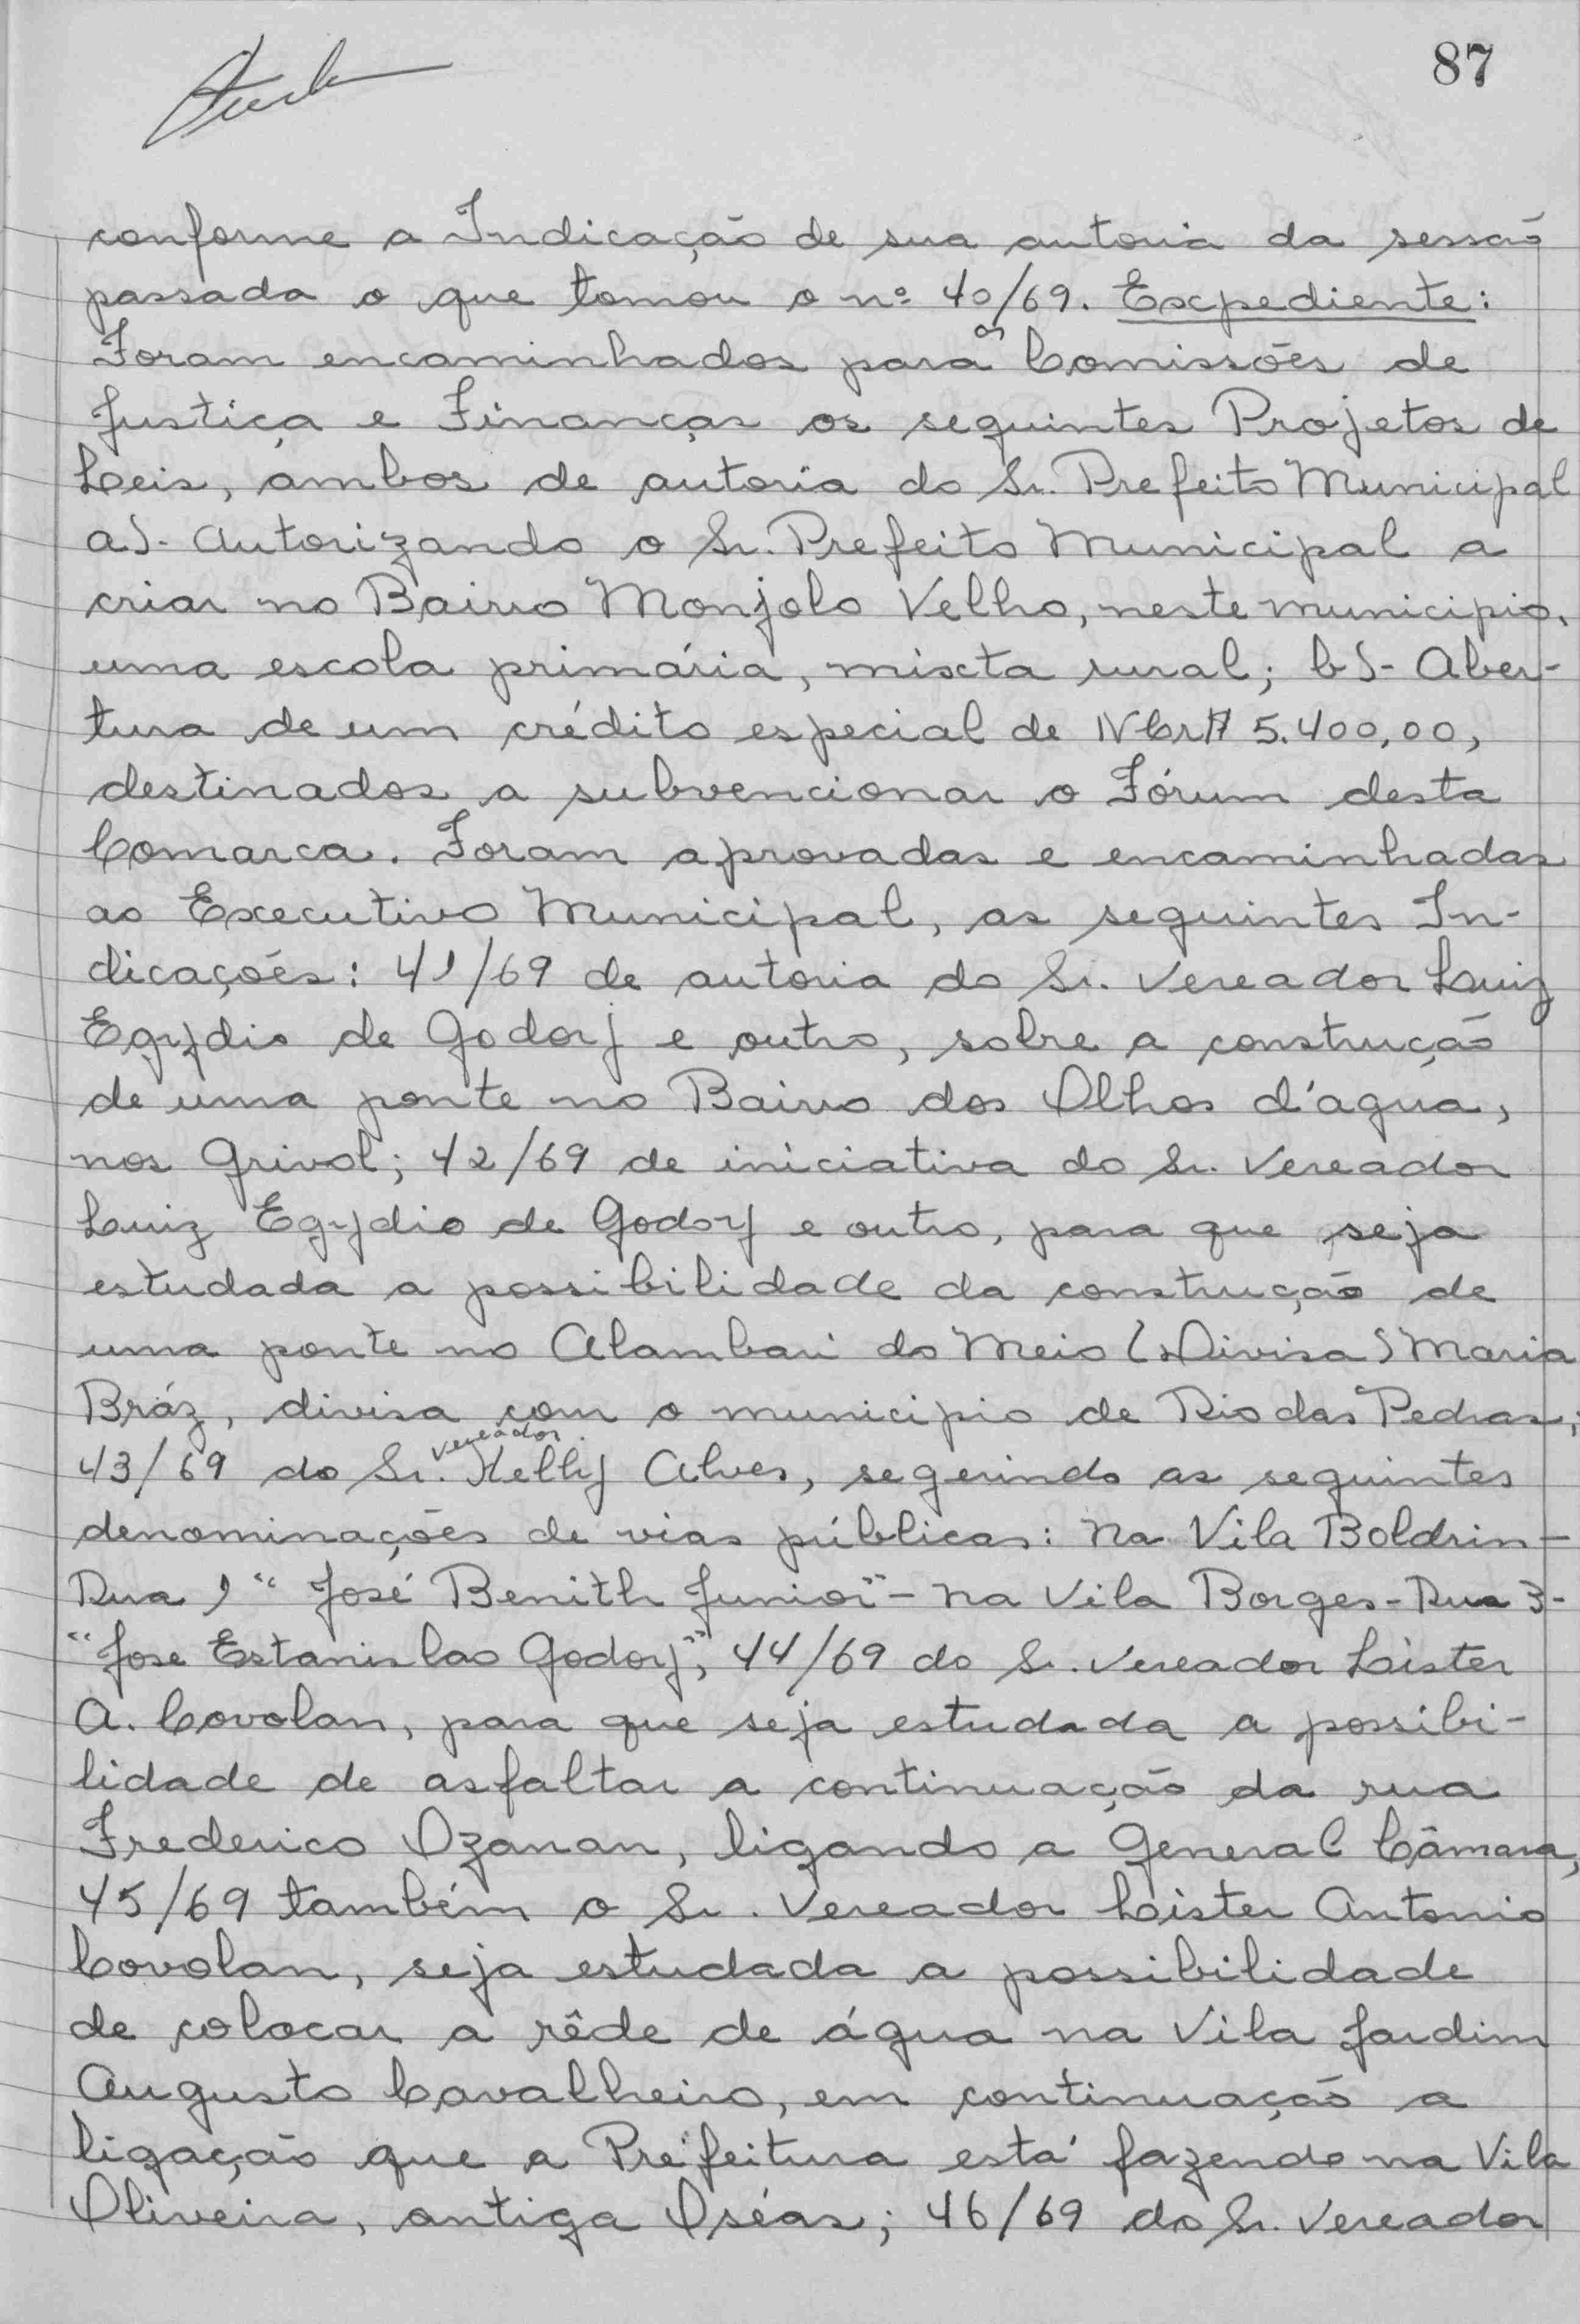 87
conforme a Indicação de sua autoria da sessão
passada o que tomou o nº 40/69. Expediente:
Foram encaminhados para as Comissões de
Justiça e Finanças os seguintes Projetos de
Leis, ambos de autoria do Sr. Prefeito Municipal
a)- Autorizando o Sr. Prefeito Municipal a
criar no Bairro Monjolo Velho, neste municipio,
uma escola primária, mixta rural; b)- Aber-
tura de um crédito especial de NCr$ 5.400,00,
destinados a subvencionar o Fórum desta
Comarca. Foram aprovadas e encaminhadas
ao Executivo Municipal, as seguintes In-
dicações: 41/69 de autoria do Sr. Vereador Luiz
Egydio de Godoy e outro, sobre a construção
de uma ponte no Bairro dos Olhos d'agua,
nos Grivol; 42/69 de iniciativa do Sr. Vereador
Luiz Egydio de Godoy e outro, para que seja
estudada a possibilidade da construção de
uma ponte no Alambari do Meio (Divisa) Maria
Bráz, divisa com o municipio de Rio das Pedras;
43/69 do Sr. vereador Kelly Alves, segerindo as seguintes
denominações de vias públicas: Na Vila Boldrin-
Rua 1 "José Benith Junior"- Na Vila Borges- Rua 3-
"Jose Estanislao Godoy"; 44/69 do Sr. Vereador Lister
A. Covolan, para que seja estudada a possibi-
lidade de asfaltar a continuação da rua
Frederico Ozanan, ligando a General Câmara,
45/69 também o Sr. Vereador Lister Antonio
Covolan, seja estudada a possibilidade
de colocar a rêde de água na Vila Jardim
Augusto Cavalheiro, em continuação a
ligação que a Prefeitura está fazendo na Vila
Oliveira, antiga Oséas; 46/69 do Sr. Vereador